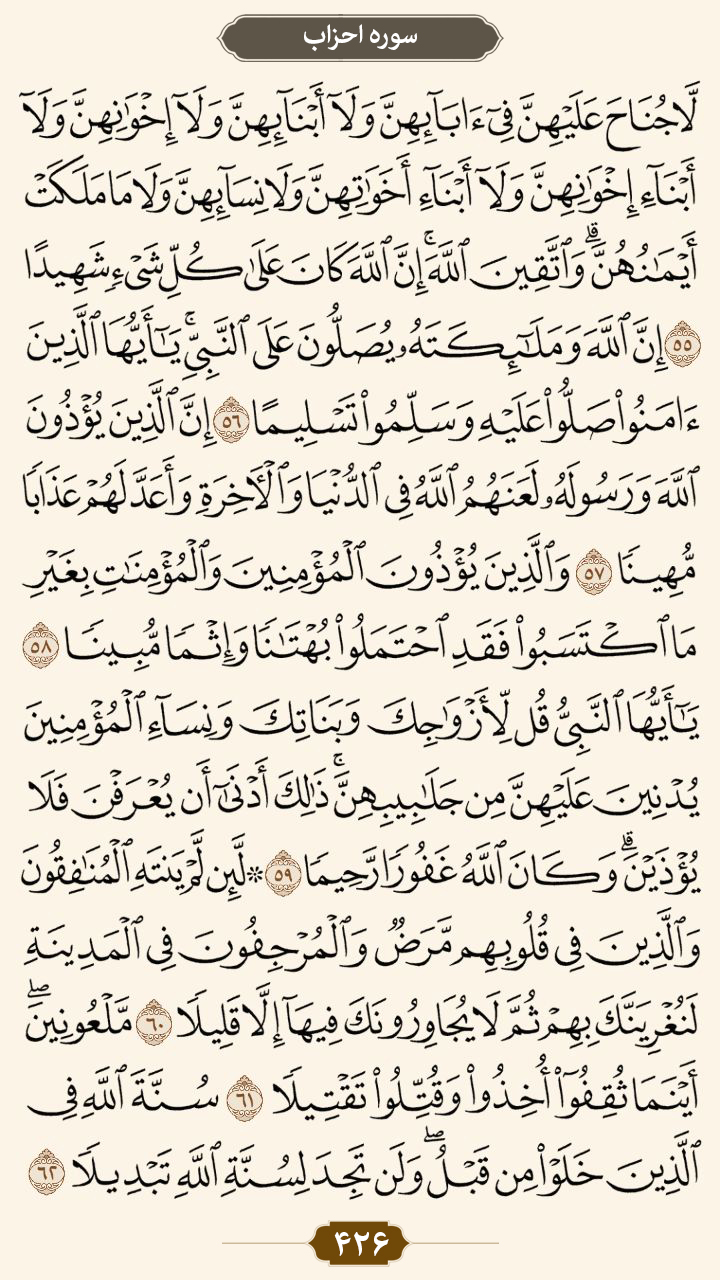 سوره احزاب
لَّا جُنَاحَ عَلَيْهِنَّ فِىٓ ءَابَآئِهِنَّ وَلَآ أَبْنَآئِهِنَّ وَلَآ إِخْوَٰنِهِنَّ وَلَآ
أَبْنَآءِ إِخْوَٰنِهِنَّ وَلَآ أَبْنَآءِ أَخَوَٰتِهِنَّ وَلَا نِسَآئِهِنَّ وَلَا مَا مَلَكَتْ
أَيْمَـٰنُهُنَّ ۗ وَٱتَّقِينَ ٱللَّهَ ۚ إِنَّ ٱللَّهَ كَانَ عَلَىٰ كُلِّ شَىْءٍ شَهِيدًا
٥٥ إِنَّ ٱللَّهَ وَمَلَـٰٓئِكَتَهُۥ يُصَلُّونَ عَلَى ٱلنَّبِىِّ ۚ يَـٰٓأَيُّهَا ٱلَّذِينَ
ءَامَنُوا۟ صَلُّوا۟ عَلَيْهِ وَسَلِّمُوا۟ تَسْلِيمًا ٥٦ إِنَّ ٱلَّذِينَ يُؤْذُونَ
ٱللَّهَ وَرَسُولَهُۥ لَعَنَهُمُ ٱللَّهُ فِى ٱلدُّنْيَا وَٱلْـَٔاخِرَةِ وَأَعَدَّ لَهُمْ عَذَابًا
مُّهِينًا ٥٧ وَٱلَّذِينَ يُؤْذُونَ ٱلْمُؤْمِنِينَ وَٱلْمُؤْمِنَـٰتِ بِغَيْرِ
مَا ٱكْتَسَبُوا۟ فَقَدِ ٱحْتَمَلُوا۟ بُهْتَـٰنًا وَإِثْمًا مُّبِينًا ٥٨
يَـٰٓأَيُّهَا ٱلنَّبِىُّ قُل لِّأَزْوَٰجِكَ وَبَنَاتِكَ وَنِسَآءِ ٱلْمُؤْمِنِينَ
يُدْنِينَ عَلَيْهِنَّ مِن جَلَـٰبِيبِهِنَّ ۚ ذَٰلِكَ أَدْنَىٰٓ أَن يُعْرَفْنَ فَلَا
يُؤْذَيْنَ ۗ وَكَانَ ٱللَّهُ غَفُورًا رَّحِيمًا ٥٩ ۞ لَّئِن لَّمْ يَنتَهِ ٱلْمُنَـٰفِقُونَ
وَٱلَّذِينَ فِى قُلُوبِهِم مَّرَضٌ وَٱلْمُرْجِفُونَ فِى ٱلْمَدِينَةِ
لَنُغْرِيَنَّكَ بِهِمْ ثُمَّ لَا يُجَاوِرُونَكَ فِيهَآ إِلَّا قَلِيلًا ٦٠ مَّلْعُونِينَ ۖ
أَيْنَمَا ثُقِفُوٓا۟ أُخِذُوا۟ وَقُتِّلُوا۟ تَقْتِيلًا ٦١ سُنَّةَ ٱللَّهِ فِى
ٱلَّذِينَ خَلَوْا۟ مِن قَبْلُ ۖ وَلَن تَجِدَ لِسُنَّةِ ٱللَّهِ تَبْدِيلًا ٦٢
۴۲۶